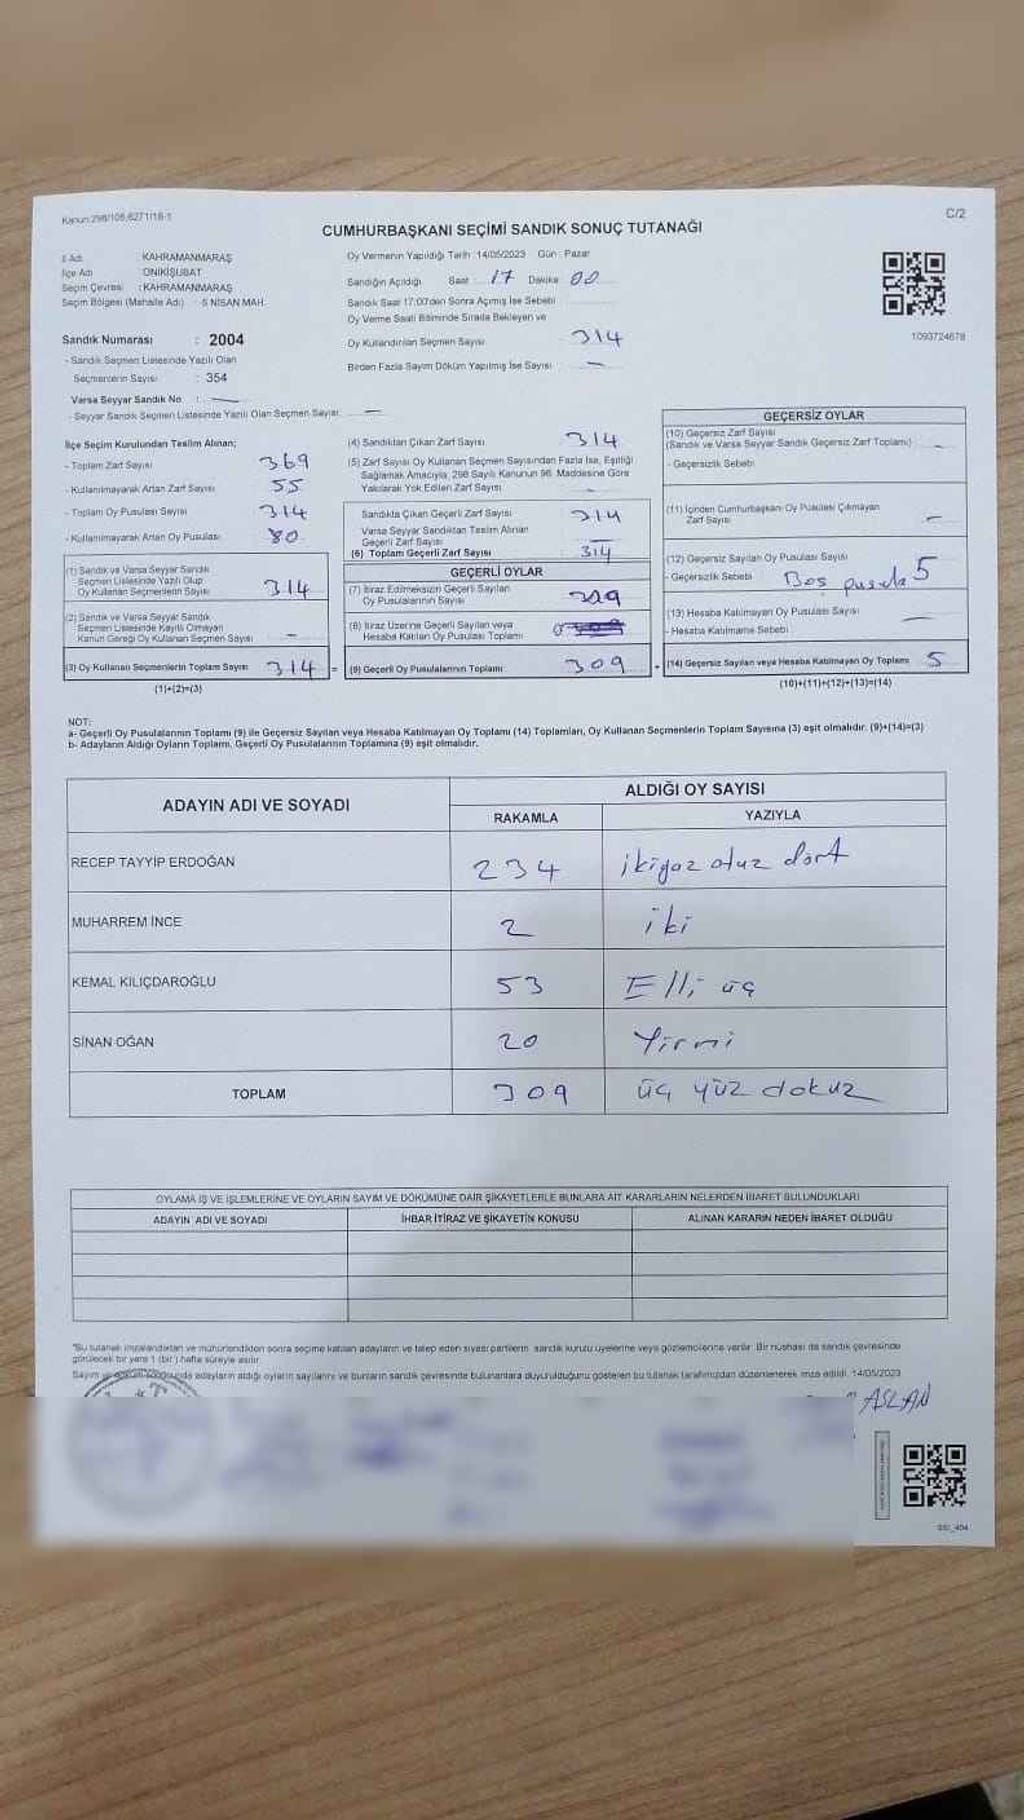 Kanun:298/105,6271/18-1
C/2
CUMHURBAŞKANI SEÇİMİ SANDIK SONUÇ TUTANAĞI
İl Adı : KAHRAMANMARAŞ
İlçe Adı : ONİKİŞUBAT
Seçim Çevresi : KAHRAMANMARAŞ
Seçim Bölgesi (Mahalle Adı) : 5 NİSAN MAH.
Oy Vermenin Yapıldığı Tarih :14/05/2023 Gün : Pazar
Sandığın Açıldığı Saat : 17 Dakika 00
Sandık Saat 17:00'den Sonra Açılmış İse Sebebi
Oy Verme Saati Bitiminde Sırada Bekleyen ve
Oy Kullandırılan Seçmen Sayısı 314
Birden Fazla Sayım Döküm Yapılmış İse Sayısı —
1093724678
Sandık Numarası : 2004
- Sandık Seçmen Listesinde Yazılı Olan
Seçmenlerin Sayısı : 354
Varsa Seyyar Sandık No : —
- Seyyar Sandık Seçmen Listesinde Yazılı Olan Seçmen Sayısı: —
İlçe Seçim Kurulundan Teslim Alınan;
- Toplam Zarf Sayısı 369
- Kullanılmayarak Artan Zarf Sayısı 55
- Toplam Oy Pusulası Sayısı 314
- Kullanılmayarak Artan Oy Pusulası 80
(1) Sandık ve Varsa Seyyar Sandık
Seçmen Listesinde Yazılı Olup
Oy Kullanan Seçmenlerin Sayısı 314
(2) Sandık ve Varsa Seyyar Sandık
Seçmen Listesinde Kayıtlı Olmayan
Kanun Gereği Oy Kullanan Seçmen Sayısı —
(3) Oy Kullanan Seçmenlerin Toplam Sayısı 314 =
(1)+(2)=(3)
(4) Sandıktan Çıkan Zarf Sayısı 314
(5) Zarf Sayısı Oy Kullanan Seçmen Sayısından Fazla İse, Eşitliği
Sağlamak Amacıyla, 298 Sayılı Kanunun 98. Maddesine Göre
Yakılarak Yok Edilen Zarf Sayısı -
Sandıkta Çıkan Geçerli Zarf Sayısı 314
Varsa Seyyar Sandıktan Teslim Alınan
Geçerli Zarf Sayısı —
(6) Toplam Geçerli Zarf Sayısı 314
GEÇERLİ OYLAR
(7) İtiraz Edilmeksizin Geçerli Sayılan
Oy Pusulalarının Sayısı 309
(8) İtiraz Üzerine Geçerli Sayılan veya
Hesaba Katılan Oy Pusulası Toplamı 0
(9) Geçerli Oy Pusulalarının Toplamı 309 +
GEÇERSİZ OYLAR
(10) Geçersiz Zarf Sayısı
(Sandık ve Varsa Seyyar Sandık Geçersiz Zarf Toplamı) —
- Geçersizlik Sebebi
(11) İçinden Cumhurbaşkanı Oy Pusulası Çıkmayan
Zarf Sayısı —
(12) Geçersiz Sayılan Oy Pusulası Sayısı 5
- Geçersizlik Sebebi Boş pusula
(13) Hesaba Katılmayan Oy Pusulası Sayısı —
- Hesaba Katılmama Sebebi
(14) Geçersiz Sayılan veya Hesaba Katılmayan Oy Toplamı 5
(10)+(11)+(12)+(13)=(14)
NOT:
a- Geçerli Oy Pusulalarının Toplamı (9) ile Geçersiz Sayılan veya Hesaba Katılmayan Oy Toplamı (14) Toplamları, Oy Kullanan Seçmenlerin Toplam Sayısına (3) eşit olmalıdır. (9)+(14)=(3)
b- Adayların Aldığı Oyların Toplamı, Geçerli Oy Pusulalarının Toplamına (9) eşit olmalıdır.
ADAYIN ADI VE SOYADI ALDIĞI OY SAYISI
RAKAMLA YAZIYLA
RECEP TAYYİP ERDOĞAN 234 ikiyüz otuz dört
MUHARREM İNCE 2 iki
KEMAL KILIÇDAROĞLU 53 Elli üç
SİNAN OĞAN 20 Yirmi
TOPLAM 309 üç yüz dokuz
OYLAMA İŞ VE İŞLEMLERİNE VE OYLARIN SAYIM VE DÖKÜMÜNE DAİR ŞİKAYETLERLE BUNLARA AİT KARARLARIN NELERDEN İBARET BULUNDUKLARI
ADAYIN ADI VE SOYADI İHBAR İTİRAZ VE ŞİKAYETİN KONUSU ALINAN KARARIN NEDEN İBARET OLDUĞU
*Bu tutanak imzalandıktan ve mühürlendikten sonra seçime katılan adayların ve talep eden siyasi partilerin sandık kurulu üyelerine veya gözlemcilerine verilir. Bir nüshası da sandık çevresinde
görülecek bir yere 1 (bir) hafta süreyle asılır.
adayların aldığı oyların sayılarını ve bunların sandık çevresinde bulunanlara duyurulduğunu gösteren bu tutanak tarafımızdan düzenlenerek imza edildi. 14/05/2023
ASLAN